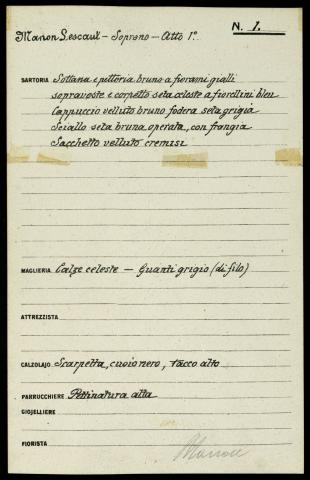 Manon Lescaut - Soprano - Atto 1º
N. 1.
SARTORIA Sottana e pettoria bruno a fiorami gialli
sopraveste e corpetto seta celeste a fiorellini bleu
Cappuccio velluto bruno fodera seta grigia
Scialle seta bruna operata, con frangia
Sacchetto velluto cremisi
MAGLIERIA Calze celeste - Guanti grigio (di filo)
ATTREZZISTA
CALZOLAJO Scarpetta, cuoio nero, tacco alto
PARRUCCHIERE Pettinatura alta
GIOJELLIERE
FIORISTA
Manon